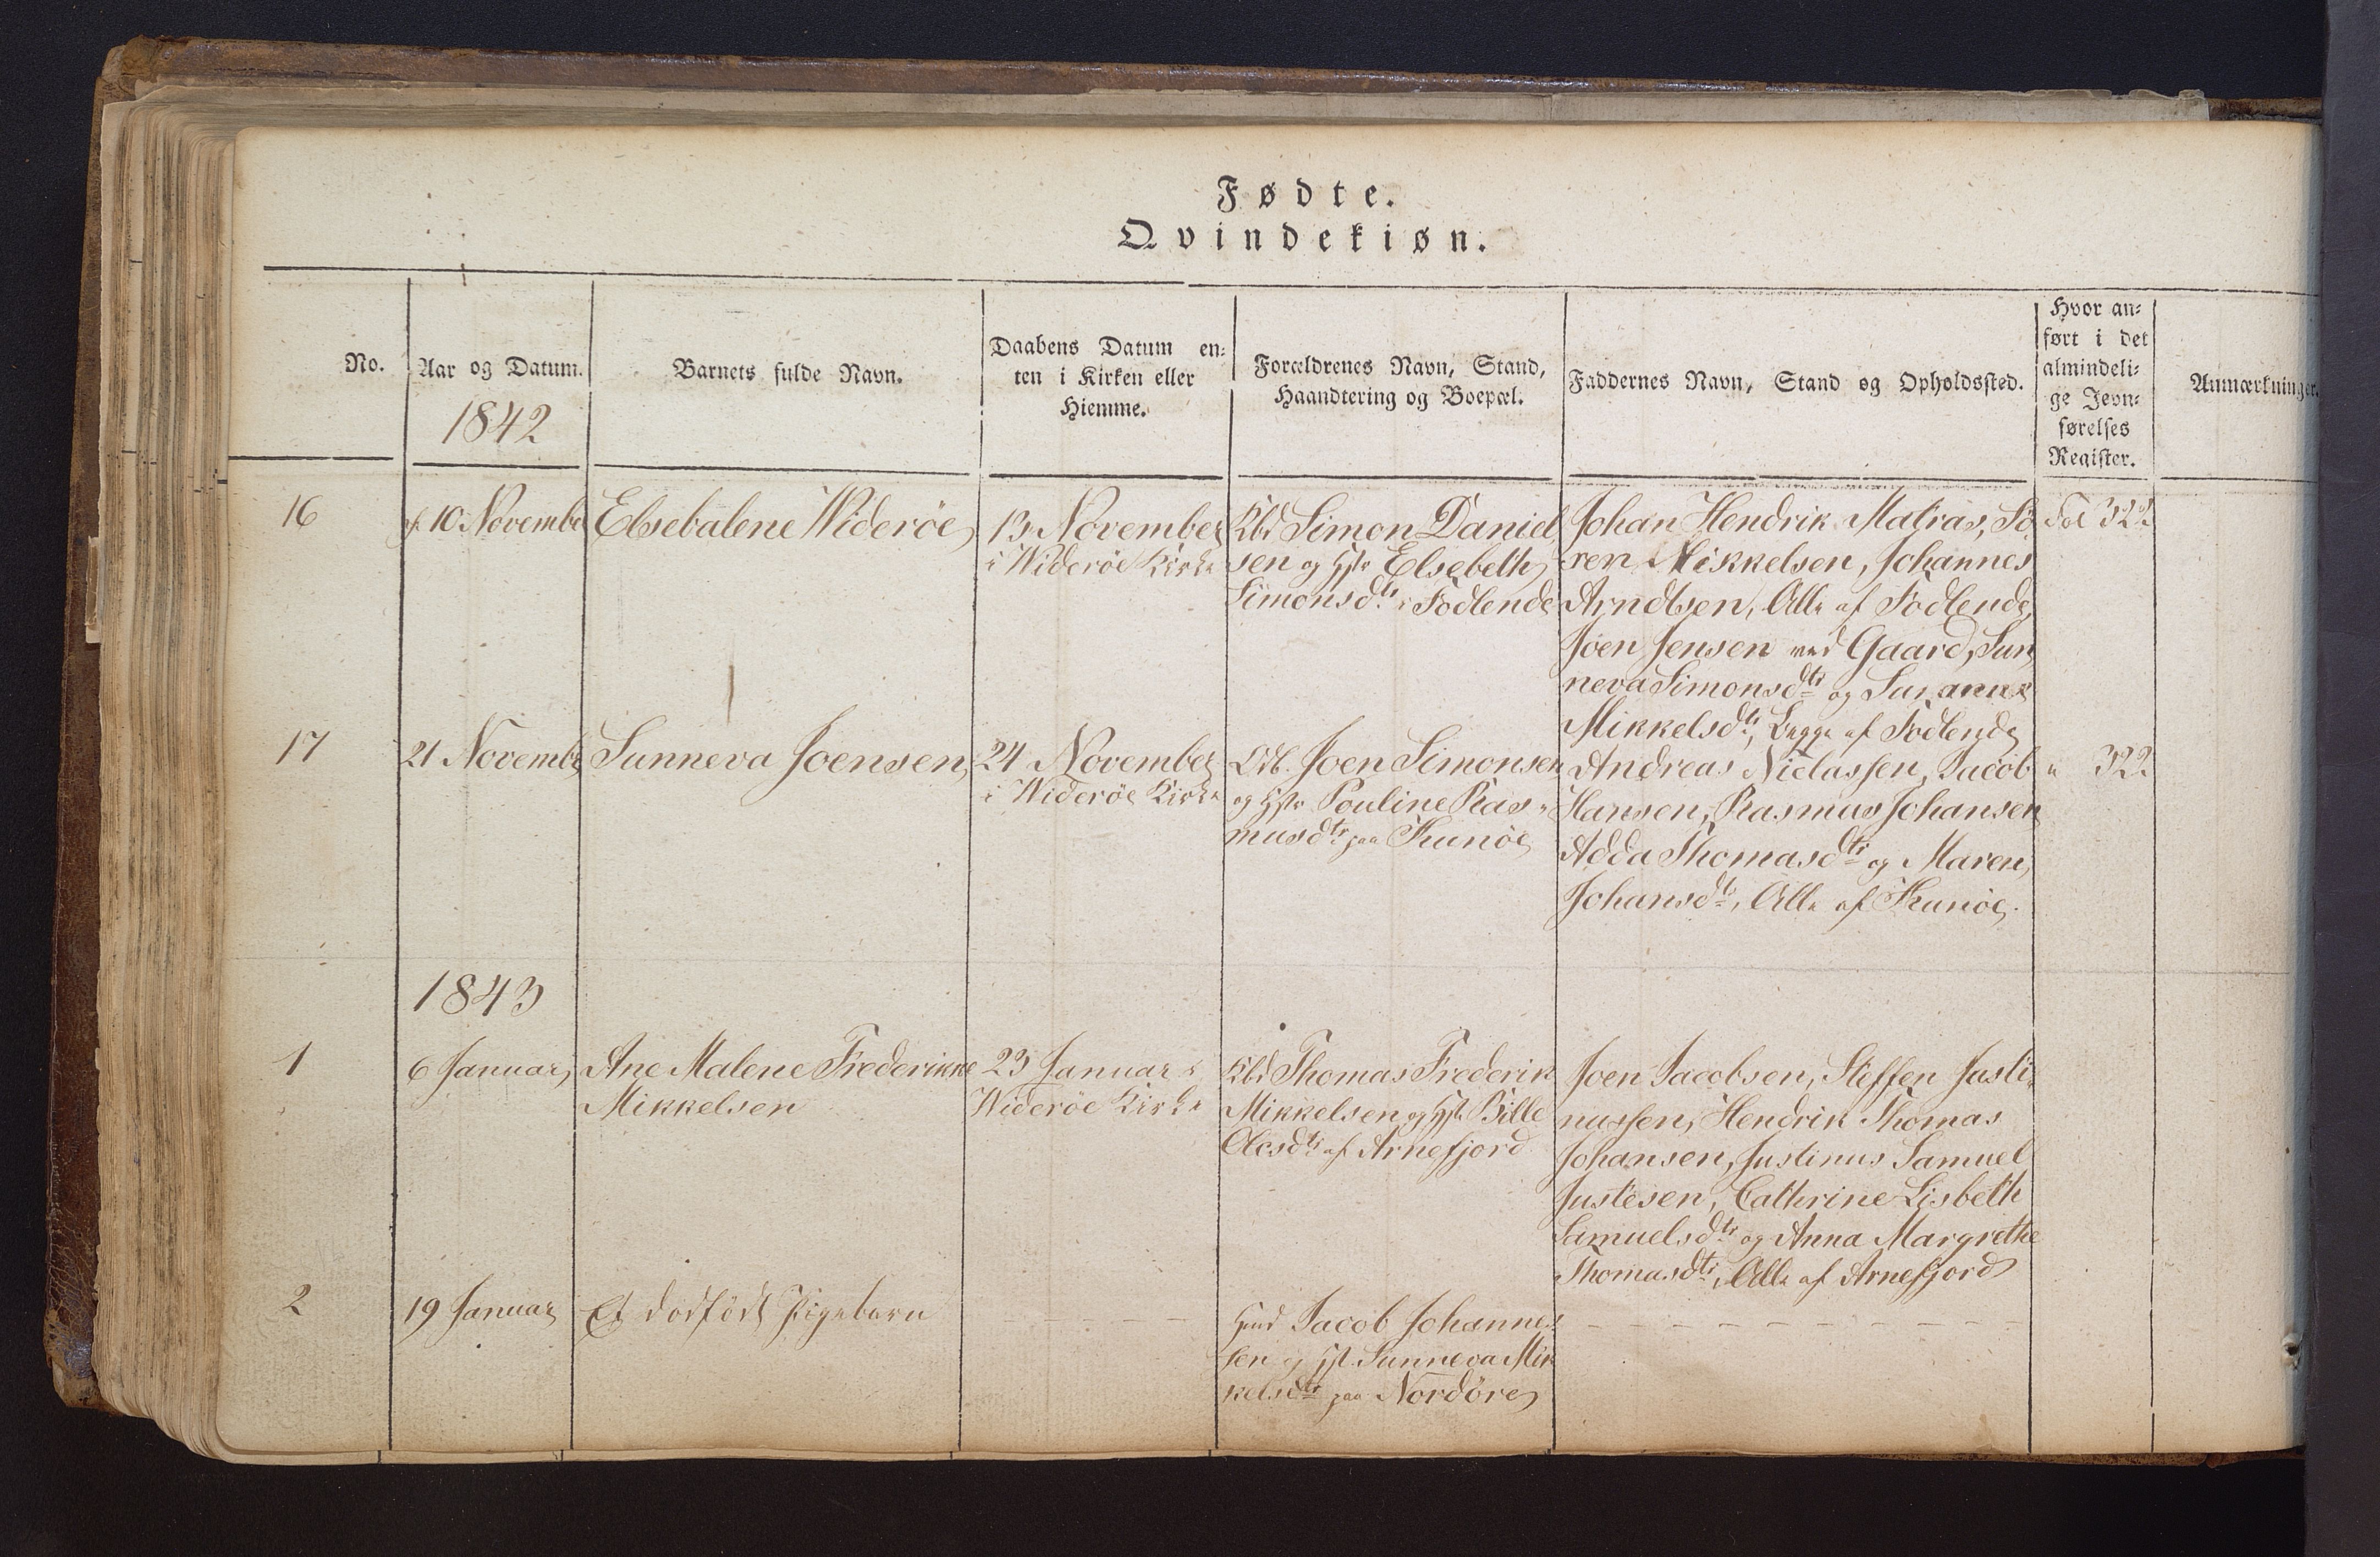 Fødte.
Qvindekiøn.
No.
Aar og Datum.
1842
Barnets fulde Navn.
Daabens Datum en=
ten i Kirken eller
Hiemme.
Forældrenes Navn, Stand,
Haandtering og Boepæl.
Faddernes Navn, Stand og Opholdssted.
Hvor an=
ført i det
almindeli=
ge Jevn=
førelses
Register.
Anmærkninger.
16
10 Novembe
Elsebalene Widerøe
13 November
i Widerøe Kirke
Kbd Simon Daniel
sen og Hstr Elsebeth
Simonsdtr i Qvodlende
Johan Hendrik Matras, Sø
ren Mikkelsen, Johannes
Arndtsen, Alle af Qvodlende
Joen Jensen ved Gaard, Sun
neva Simonsdtr og Susanne
Mikkelsdtr, Begge af Qvodlende
Fol 322
17
21 Novembe
Sunneva Joensen
24 November
i Widerøe Kirke
Joen Simonsen
og Hstr Pouline Ras-
musdtr paa Kunøe
Andreas Niclassen, Jacob
Hansen, Rasmus Johansen
Adda Thomasdtr og Maren
Johansdtr, Alle af Kunøe.
" 322
1843
1
6 Januar
Ane Malene Frederikke
Mikkelsen
23 Januar i
Widerøe Kirke
Kbd Thomas Frederik
Mikkelsen og Hstr Bille
Olesdtr af Arnefjord
Joen Jacobsen, Steffen Justi-
nussen, Hendrik Thomas
Johansen, Justinus Samuel
Justesen, Cathrine Lisbeth
Samuelsdtr og Anna Margrethe
Thomasdtr, Alle af Arnefjord
2
19 Januar
Et dødfødt Pigebarn
- - - - -
Hmd Jacob Johannes
sen og Hst. Sunneva Mik
kelsdtr paa Nordøre
- - - - - - - - - - -